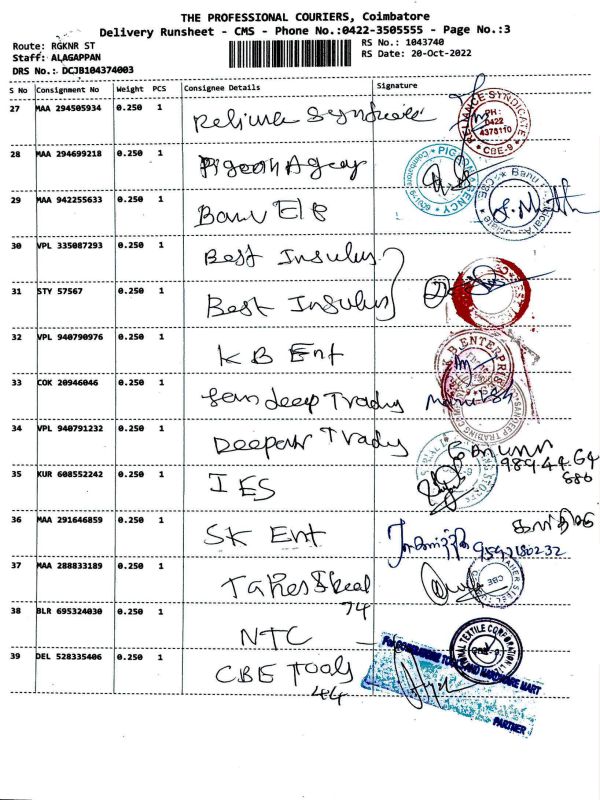 THE PROFESSIONAL COURIERS, Coimbatore
Delivery Runsheet - CMS - Phone No.:0422-3505555 - Page No.:3
Route: RGKNR ST
RS No.: 1043740
Staff: ALAGAPPAN
RS Date: 20-Oct-2022
DRS No.: DCJB104374003
S No Consignment No Weight PCS Consignee Details Signature
27 MAA 294505934 0.250 1 Reliance Syndicate
RELIANCE SYNDICATE PH: 0422 4378110 CBE-9
28 MAA 294699218 0.250 1 Pigeon Agency
29 MAA 942255633 0.250 1 Banu Ele
30 VPL 335087293 0.250 1 Best Insulus
31 STY 57567 0.250 1 Best Insulus
32 VPL 940790976 0.250 1 KB Ent
K B ENTERPRIS
33 COK 20946046 0.250 1 Sandeep Tradng
SANDEEP TRADING
34 VPL 940791232 0.250 1 Deepak Tradng
98944 64
686
35 KUR 608552242 0.250 1 IES
36 MAA 291646859 0.250 1 SK Ent
9597180232
37 MAA 288833189 0.250 1
CBE
74
38 BLR 695324030 0.250 1 NTC
TEXTILE CORPORATION
39 DEL 528335406 0.250 1 CBE Tools
44
For COIMBATORE TOOLS AND HARDWARE MART
PARTNER